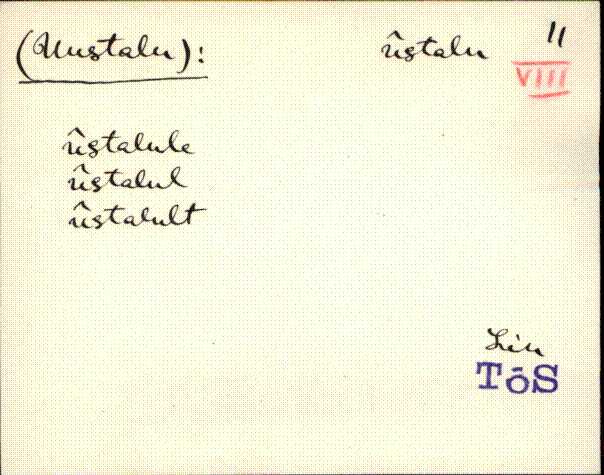 (Uustalu): ûstalu 11
VIII
ûstalule
ûstalul
ûstalult
Lin
TõS